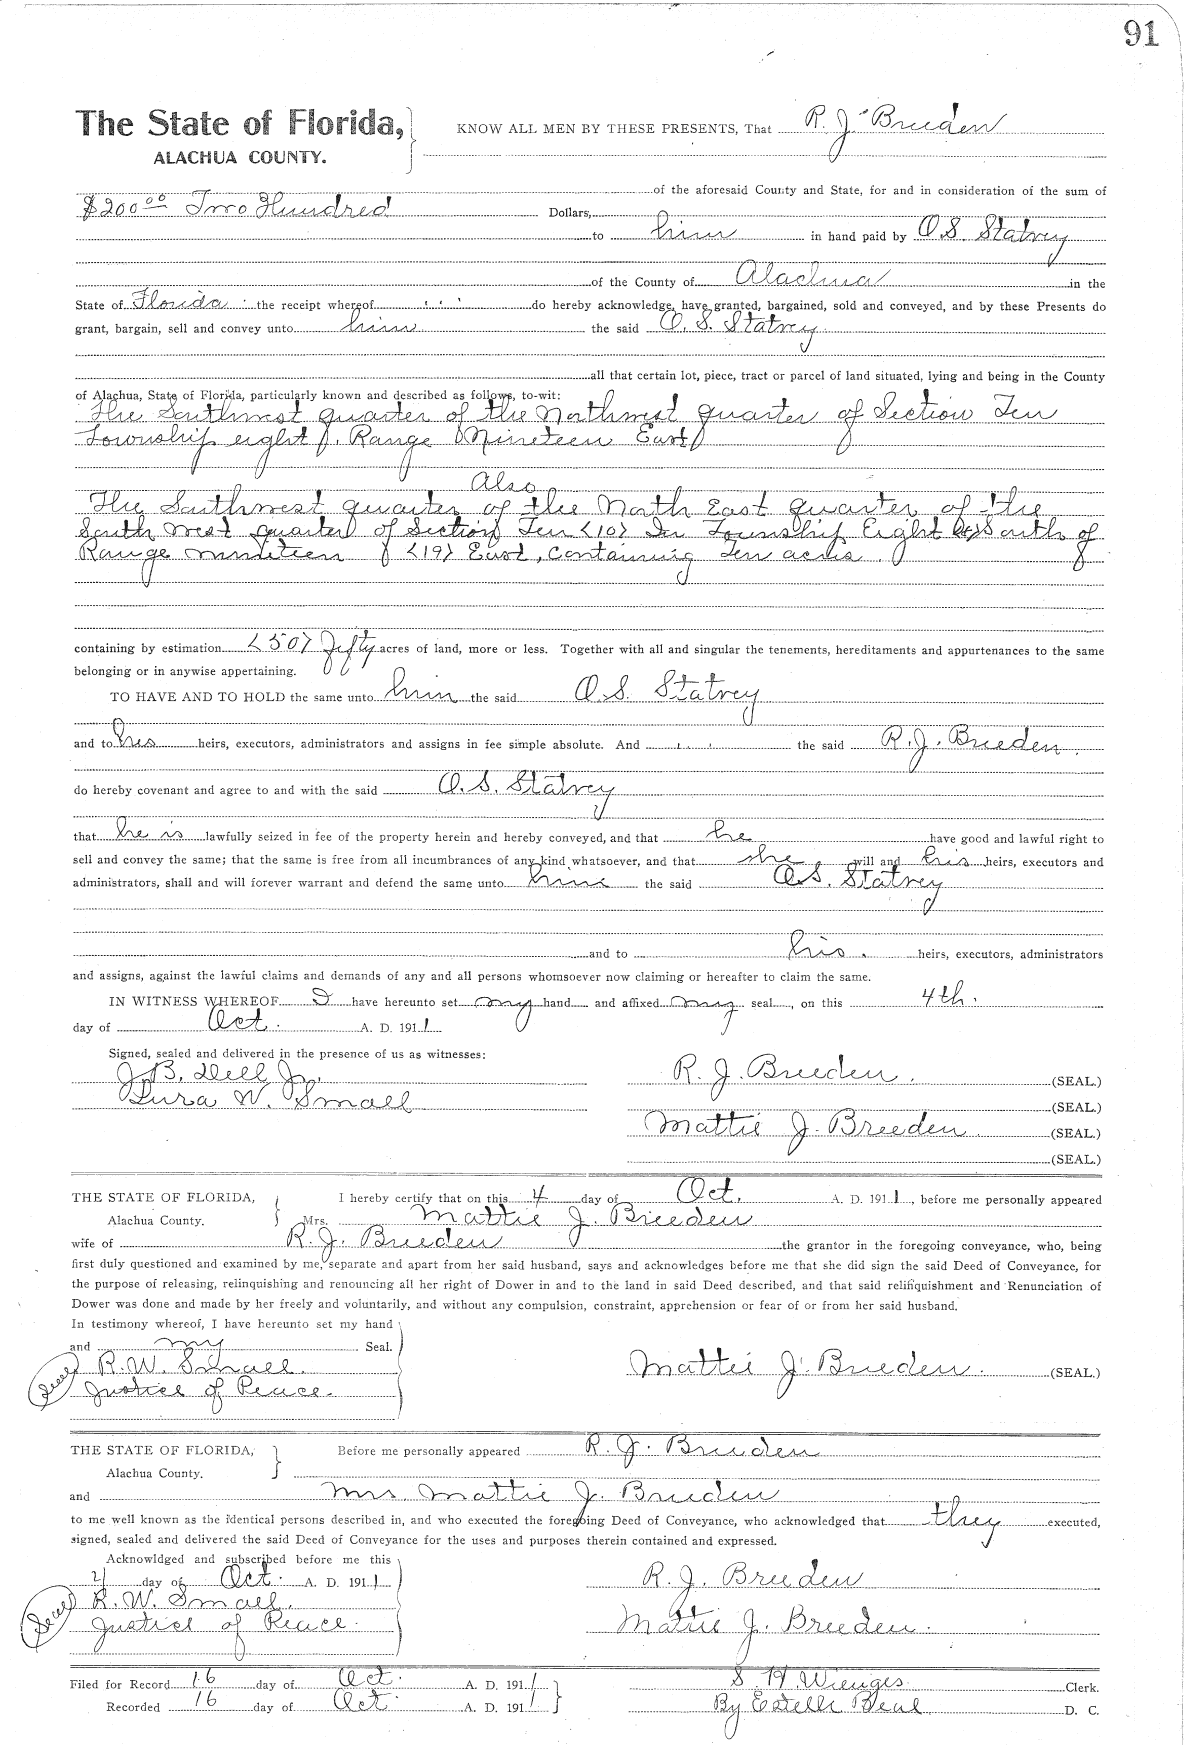 91
The State of Florida, KNOW ALL MEN BY THESE PRESENTS, That R. J. Breeden
ALACHUA COUNTY.
of the aforesaid County and State, for and in consideration of the sum of
$200.00 Two Hundred Dollars,
to him in hand paid by O.S. Statvey
of the County of Alachua in the
State of Florida the receipt whereof do hereby acknowledge, have granted, bargained, sold and conveyed, and by these Presents do
grant, bargain, sell and convey unto him the said O. S. Statvey
all that certain lot, piece, tract or parcel of land situated, lying and being in the County
of Alachua, State of Florida, particularly known and described as follows, to-wit:
The Southwest quarter of the Northwest quarter of Section Ten
Township eight, Range Nineteen East
Also
The Southwest quarter of the North East quarter of the
South west quarter of Section Ten <10> In Township Eight South of
Range ninteen <19> East, containing Ten acres.
containing by estimation <50> Fifty acres of land, more or less. Together with all and singular the tenements, hereditaments and appurtenances to the same
belonging or in anywise appertaining.
TO HAVE AND TO HOLD the same unto him the said O.S. Statvey
and to his heirs, executors, administrators and assigns in fee simple absolute. And the said R.J. Breeden.
do hereby covenant and agree to and with the said O.S. Statvey
that he is lawfully seized in fee of the property herein and hereby conveyed, and that he have good and lawful right to
sell and convey the same; that the same is free from all incumbrances of any kind whatsoever, and that she will and his heirs, executors and
administrators, shall and will forever warrant and defend the same unto him the said O.S. Statvey
and to his. heirs, executors, administrators
and assigns, against the lawful claims and demands of any and all persons whomsoever now claiming or hereafter to claim the same.
IN WITNESS WHEREOF I have hereunto set my hand and affixed my seal, on this 4th.
day of Oct. A. D. 1911
Signed, sealed and delivered in the presence of us as witnesses:
J.B. Dell Jr. R. J. Breeden. (SEAL.)
Lura W. Small (SEAL.)
Mattie J. Breeden (SEAL.)
(SEAL.)
THE STATE OF FLORIDA, I hereby certify that on this 4 day of Oct. A. D. 1911, before me personally appeared
Alachua County. Mrs. Mattie J. Breeden
wife of R. J. Breeden the grantor in the foregoing conveyance, who, being
first duly questioned and examined by me, separate and apart from her said husband, says and acknowledges before me that she did sign the said Deed of Conveyance, for
the purpose of releasing, relinquishing and renouncing all her right of Dower in and to the land in said Deed described, and that said relinquishment and Renunciation of
Dower was done and made by her freely and voluntarily, and without any compulsion, constraint, apprehension or fear of or from her said husband.
In testimony whereof, I have hereunto set my hand
and my Seal.
Seal R.W. Small. Mattie J. Breeden. (SEAL.)
Justice of Peace.
THE STATE OF FLORIDA, Before me personally appeared R. J. Breeden
Alachua County.
and Mrs. Mattie J. Breeden
to me well known as the identical persons described in, and who executed the foregoing Deed of Conveyance, who acknowledged that they executed,
signed, sealed and delivered the said Deed of Conveyance for the uses and purposes therein contained and expressed.
Acknowldged and subscribed before me this
4 day of Oct. A. D. 1911 R. J. Breeden
Seal R. W. Small.
Justice of Peace. Mattie J. Breeden.
Filed for Record 16 day of Oct. A. D. 1911 S H Wienges Clerk.
Recorded 16 day of Oct. A. D. 1911 By Estelle Beal D. C.